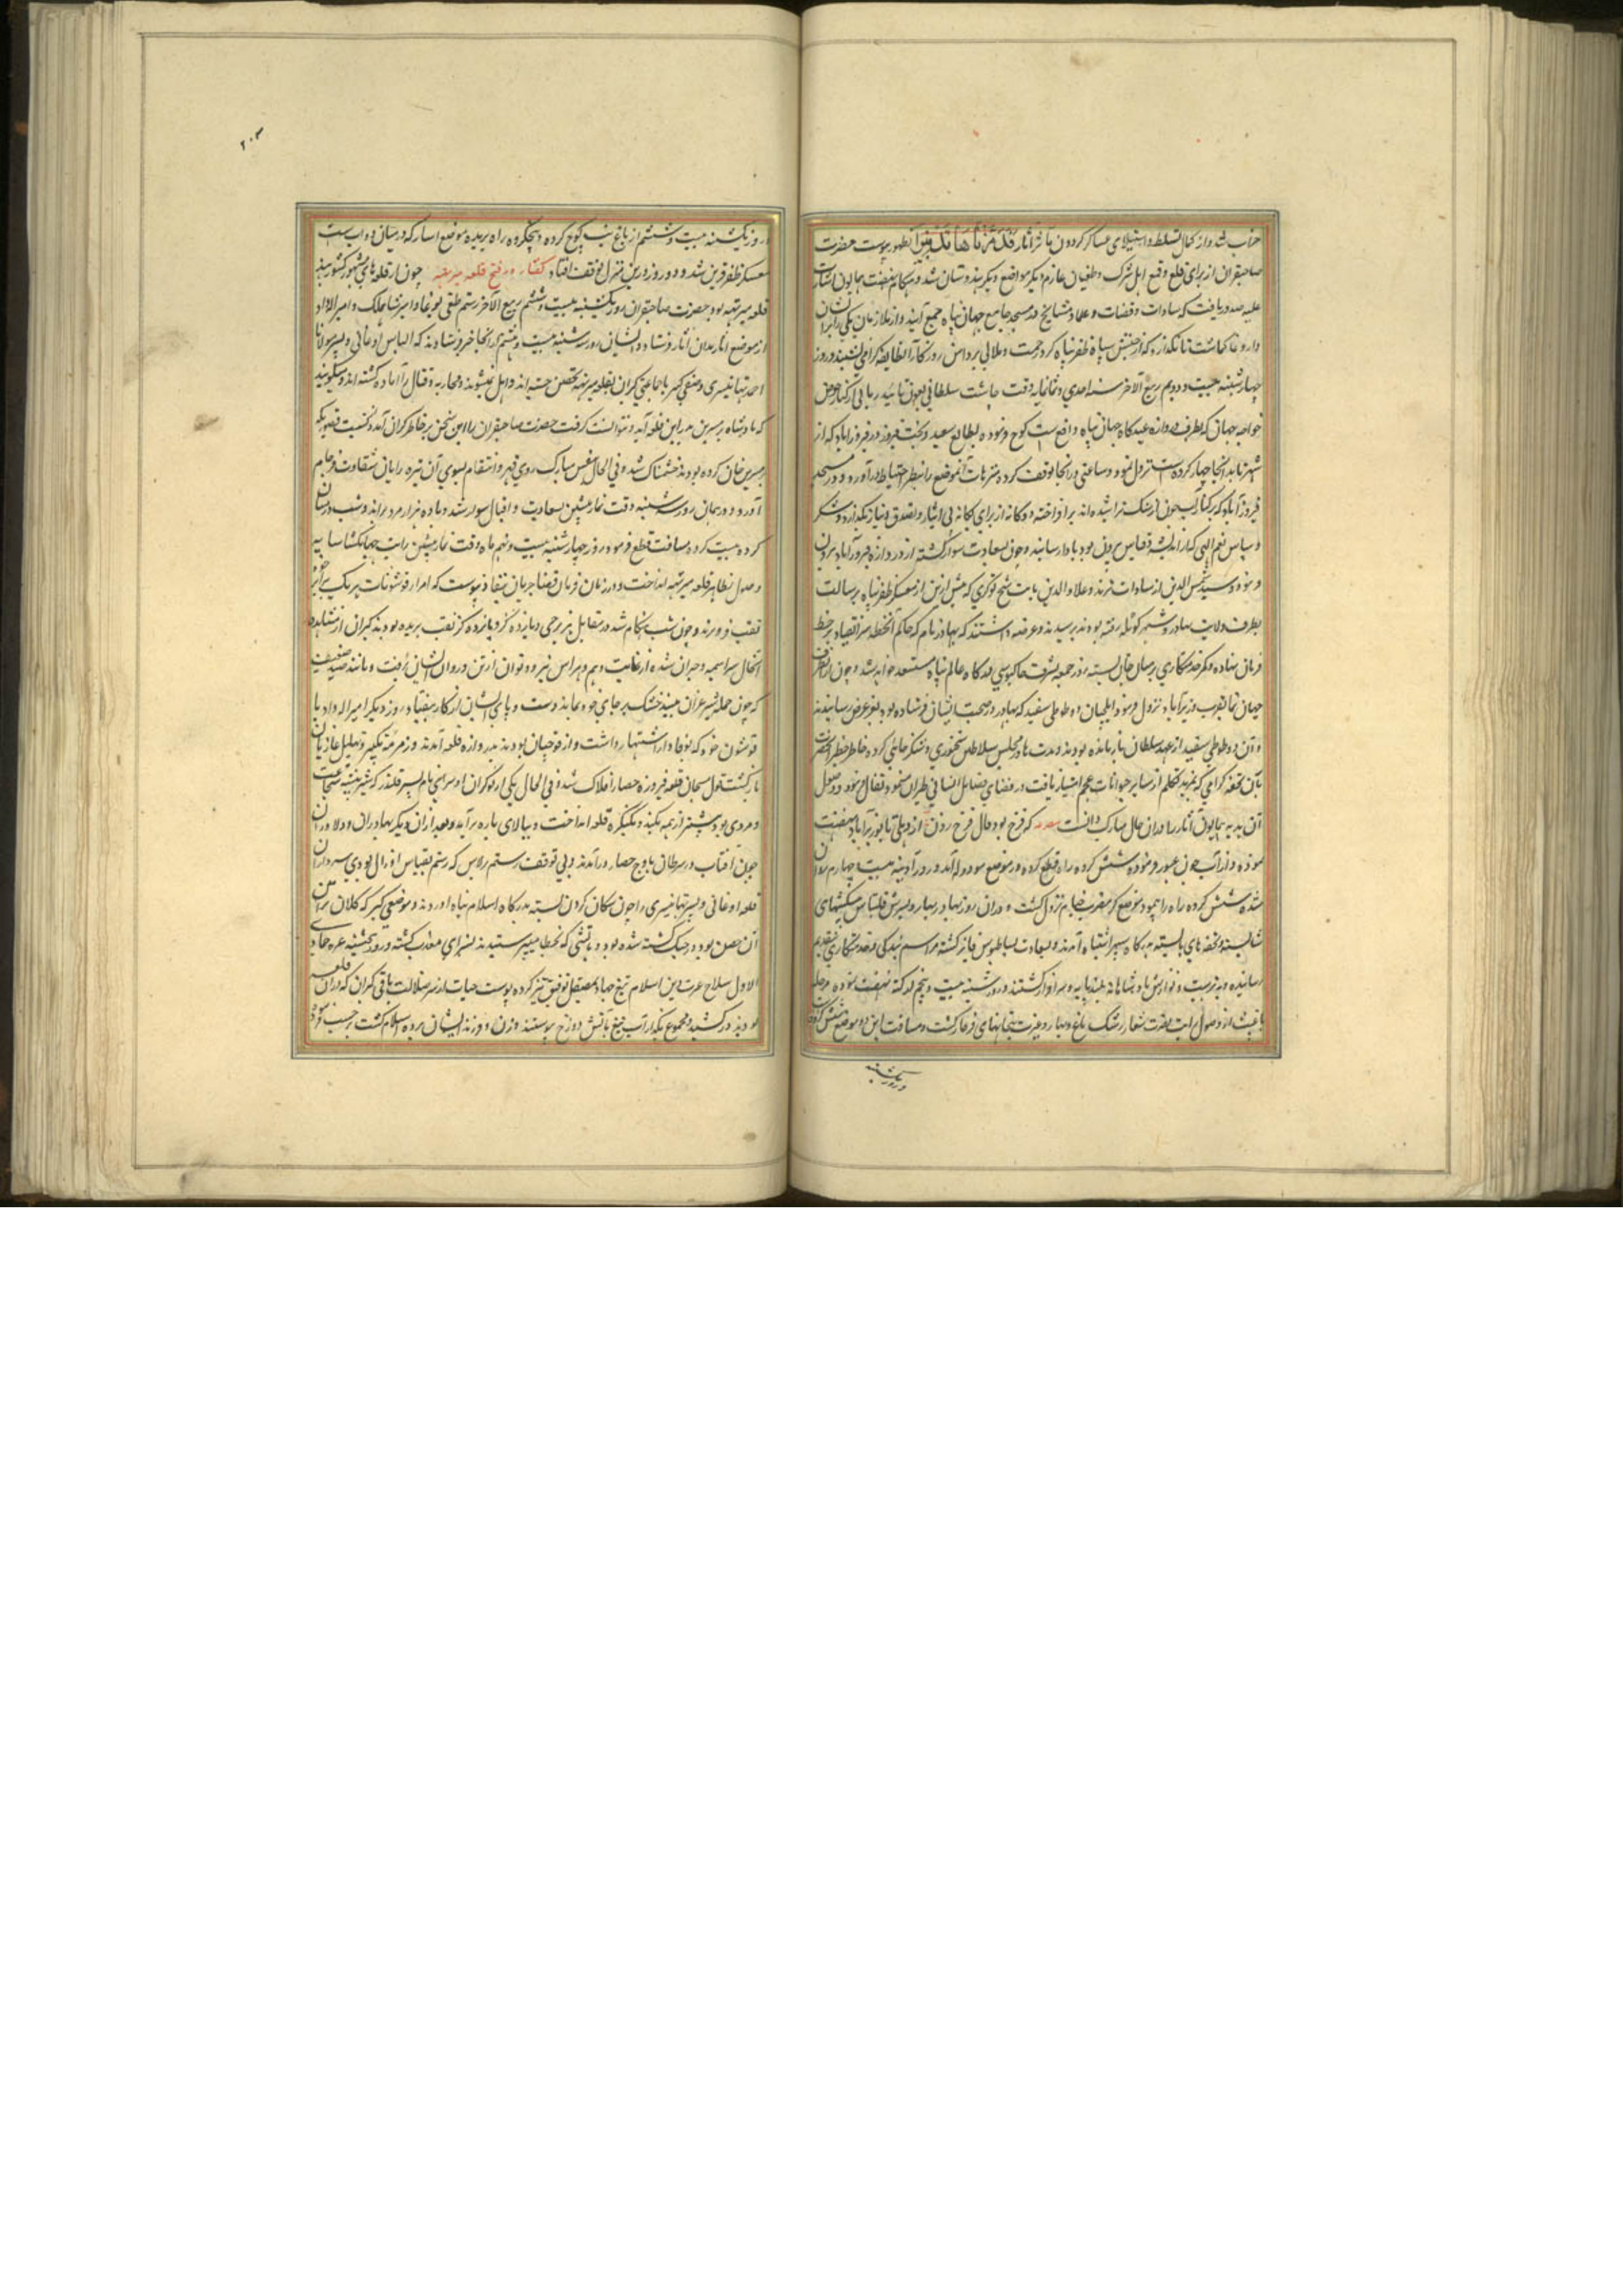 خراب شد و از کمال تسلط و استیلای عساکر گردون مآثر آثار فَدَمَّرْنَاهَا تَدْمِیرًا بظهور پیوست حضرت
صاحبقران از برای قلع و قمع اهل شرک و طغیان عازم دیگر مواضع هندوستان شد و هنگام نهضت همایون اشارت
علیه صدور یافت که سادات و قضات و علما و مشایخ در مسجد جامع جهان پناه جمع آیند و از ملازمان یکی را بر ایشان
داروغا گماشت تا نگذارد که از جنبش سپاه ظفر پناه گرد زحمت و ملالی بر دامن روزگار آن طایفه گرامی نشیند و روز
چهارشنبه بیست و دویم ربیع الآخر سنه احدی و ثمانمایه وقت چاشت سلطانی بعون تائید ربانی از کنار حوض
خواجه جهان که بطرف دروازه عیدگاه جهان پناه واقع است کوچ فرموده بطالع سعید و بخت فیروز در فیروزآباد که از
شهر تا بدانجا چهار کروه است نزول نمود و ساعتی در آنجا توقف کرده متنزهات آن موضع را بنظر احتیاط درآورد و در مسجد
فیروزآباد که بر کنار آب جون از سنگ تراشیده‌اند برافراخته دوگانه از برای یگانه بی انباز و الصدق و نیاز بگذارد و شکر
و سپاس نعم الهی که از اندیشه و قیاس بیرون بود بادا رسانید و چون بسعادت سوار گشته از دروازه فیروزآباد بیرون
فرمود سید شمس الدین از سادات ترمذ و علاء الدین نایب شیخ کوکری که پیش ازین از معسکر ظفر پناه برسالت
بطرف ولایت بهادر و شهر کوتله رفته بودند برسیدند و عرضه داشتند که بهادر نام که حاکم آن خطه سر انقیاد بر خط
فرمان نهاده و کمر خدمتکاری بر میان جان بسته روز جمعه بشرف خاکبوسی درگاه عالم پناه مستسعد خواهد شد و چون از طرف
جهان نما بقرب وزیرآباد نزول فرمود ایلچیان دو طوطی سفید که بهادر در صحبت ایشان فرستاده بود بعز عرض رسانیدند
و آن دو طوطی سفید از عهد سلطان باز مانده بودند و مدت‌ها در مجلس سلاطین سخنوری و شکر خائی کرده خاطر خطیر آن حضرت
بآن تحفه گرامی که بمزید تکلم از سایر حیوانات عجم امتیاز یافت در فضای فضایل انسانی طیران می‌نمود تفأل نمود و وصول
آن هدیه همایون آثار را در آن حال مبارک دانست که فرخ بود فال فرخ زدن از دهلی تا بوزیرآباد نهضت
نموده و از آب جون عبور فرموده شش کروه راه قطع کرده در موضع مودوله آمد و روز آدینه بیست و چهارم روان
شده شش کروه راه را پیمود بموضع کته مضرب خیام نزول گشت و در آن روز بهادر نهار و پسرش قلتاش پیشکشهای
شایسته و تحفه‌های بایسته بدرگاه سپهر اشتباه آمدند و بسعادت بساط بوس فایز گشته مراسم بندگی و خدمتگاری بتقدیم
رسانیده و بتربیت و نوازش پادشاهانه بلند پایه و سرافراز گشتند و روز شنبه بیست و پنجم از کته نهضت نموده مرحله
باغپت از وصول رایت نصرت شعار رشک باغ و بهار و غیرت بتخانهای فرخار گشت و مسافت این دو موضع شش کروه
و روز یکشنبه
۲۰۳
و روز یکشنبه بیست و ششم از باغپت کوچ کرده و پنج کروه راه بریده موضع اسار که در میان دو آب است
معسکر ظفر قرین شد و دو روز درین منزل توقف افتاد گفتار در فتح قلعه میرته چون از قلعه‌های مشهور کشور هند
قلعه میرته بود حضرت صاحبقران روز یکشنبه بیست و ششم ربیع الآخر رستم طغی بوغا و امیر شاهملک و امیر الله داد
از موضع اسار بدان آثار فرستاد و ایشان روز سه شنبه بیست و هشتم از آنجا خبر فرستادند که الیاس اوغانی و پسر مولانا
احمد تهانیسری و صفی کبر با جماعتی گبران بقلعه میرته تحصن جسته‌اند و ایل نمیشوند و محاربه و قتال را آماده گشته‌اند و میگویند
که پادشاه ترمشرین بدر این قلعه آمد و نتوانست گرفت حضرت صاحبقران را این سخن بر خاطر گران آمد که نسبت قصور بکه
ترمشرین خان کرده بودند خشمناک شد و فی الحال بنفس مبارک روی قهر و انتقام بسوی آن تیره رایان شقاوت فرجام
آورد و در همان روز سه شنبه وقت نماز پیشین بسعادت و اقبال سوار شد و با ده هزار مرد براند و شب در میان
کرده بیست کروه مسافت قطع فرمود و روز چهارشنبه بیست و نهم ماه وقت نماز پیشین رایت جهانگشا سایه
وصول بظاهر قلعه میرته انداخت و در زمان فرمان قضا جریان بنفاذ پیوست که امرای قوشونات هر یک برابر خود
نقب فرو برند و چون شب هنگام شد در مقابل هر برجی ده پانزده گز نقب بریده بودند گبران از مشاهده
آنحال سراسیمه و حیران شده از غایت وهم و هراس نیرو و توان از تن و روان ایشان رفت و مانند صید ضعیف
که چون حمله شیر غران بیند خشک بر جای خود بماند دست و پای ایشان از کار بیفتاد روز دیگر امیر الله داد با
قوشون خود که بوفادار اشتهار داشت و از قوچیان بودند بدروازه قلعه آمدند و زمزمه تکبیر و تهلیل غازیان
بازگشت هول مسبحان قلعه فیروزه حصار افلاک شد و فی الحال یکی از نوکران او سرای نام پسر قلندر که شیر بیشه شجاعت
و مردی بود پیشتر از همه کمند بکنگره قلعه انداخت و ببالای باره برآمد و بعد از آن دیگر بهادران و دلاوران
چون آفتاب در سرطان باوج حصار درآمدند و بی توقف رستم برلاس که رستم بقیاس او زال بودی سرداران
قلعه اوغانی و پسر تهانیسری را چون سگان گردن بسته بدرگاه اسلام پناه آوردند و موضعی کبر که کلان تران
آن حصن بود در جنگ کشته شده بود و بآتشی که بخطا میپرستیدند بسزای معذب گشته و روز پنجشنبه غره جمادی
الاول سلاح غیرت دین اسلام تیغ جهاد بصیقل توفیق تیز کرده پوست حیات از سر ضلالت باقی گبران که در آن قلعه
بودند درکشید و مجموع بگذار آب تیغ بآتش دوزخ پیوستند و زن و فرزند ایشان برده اسلام گشت بر حسب فرمود